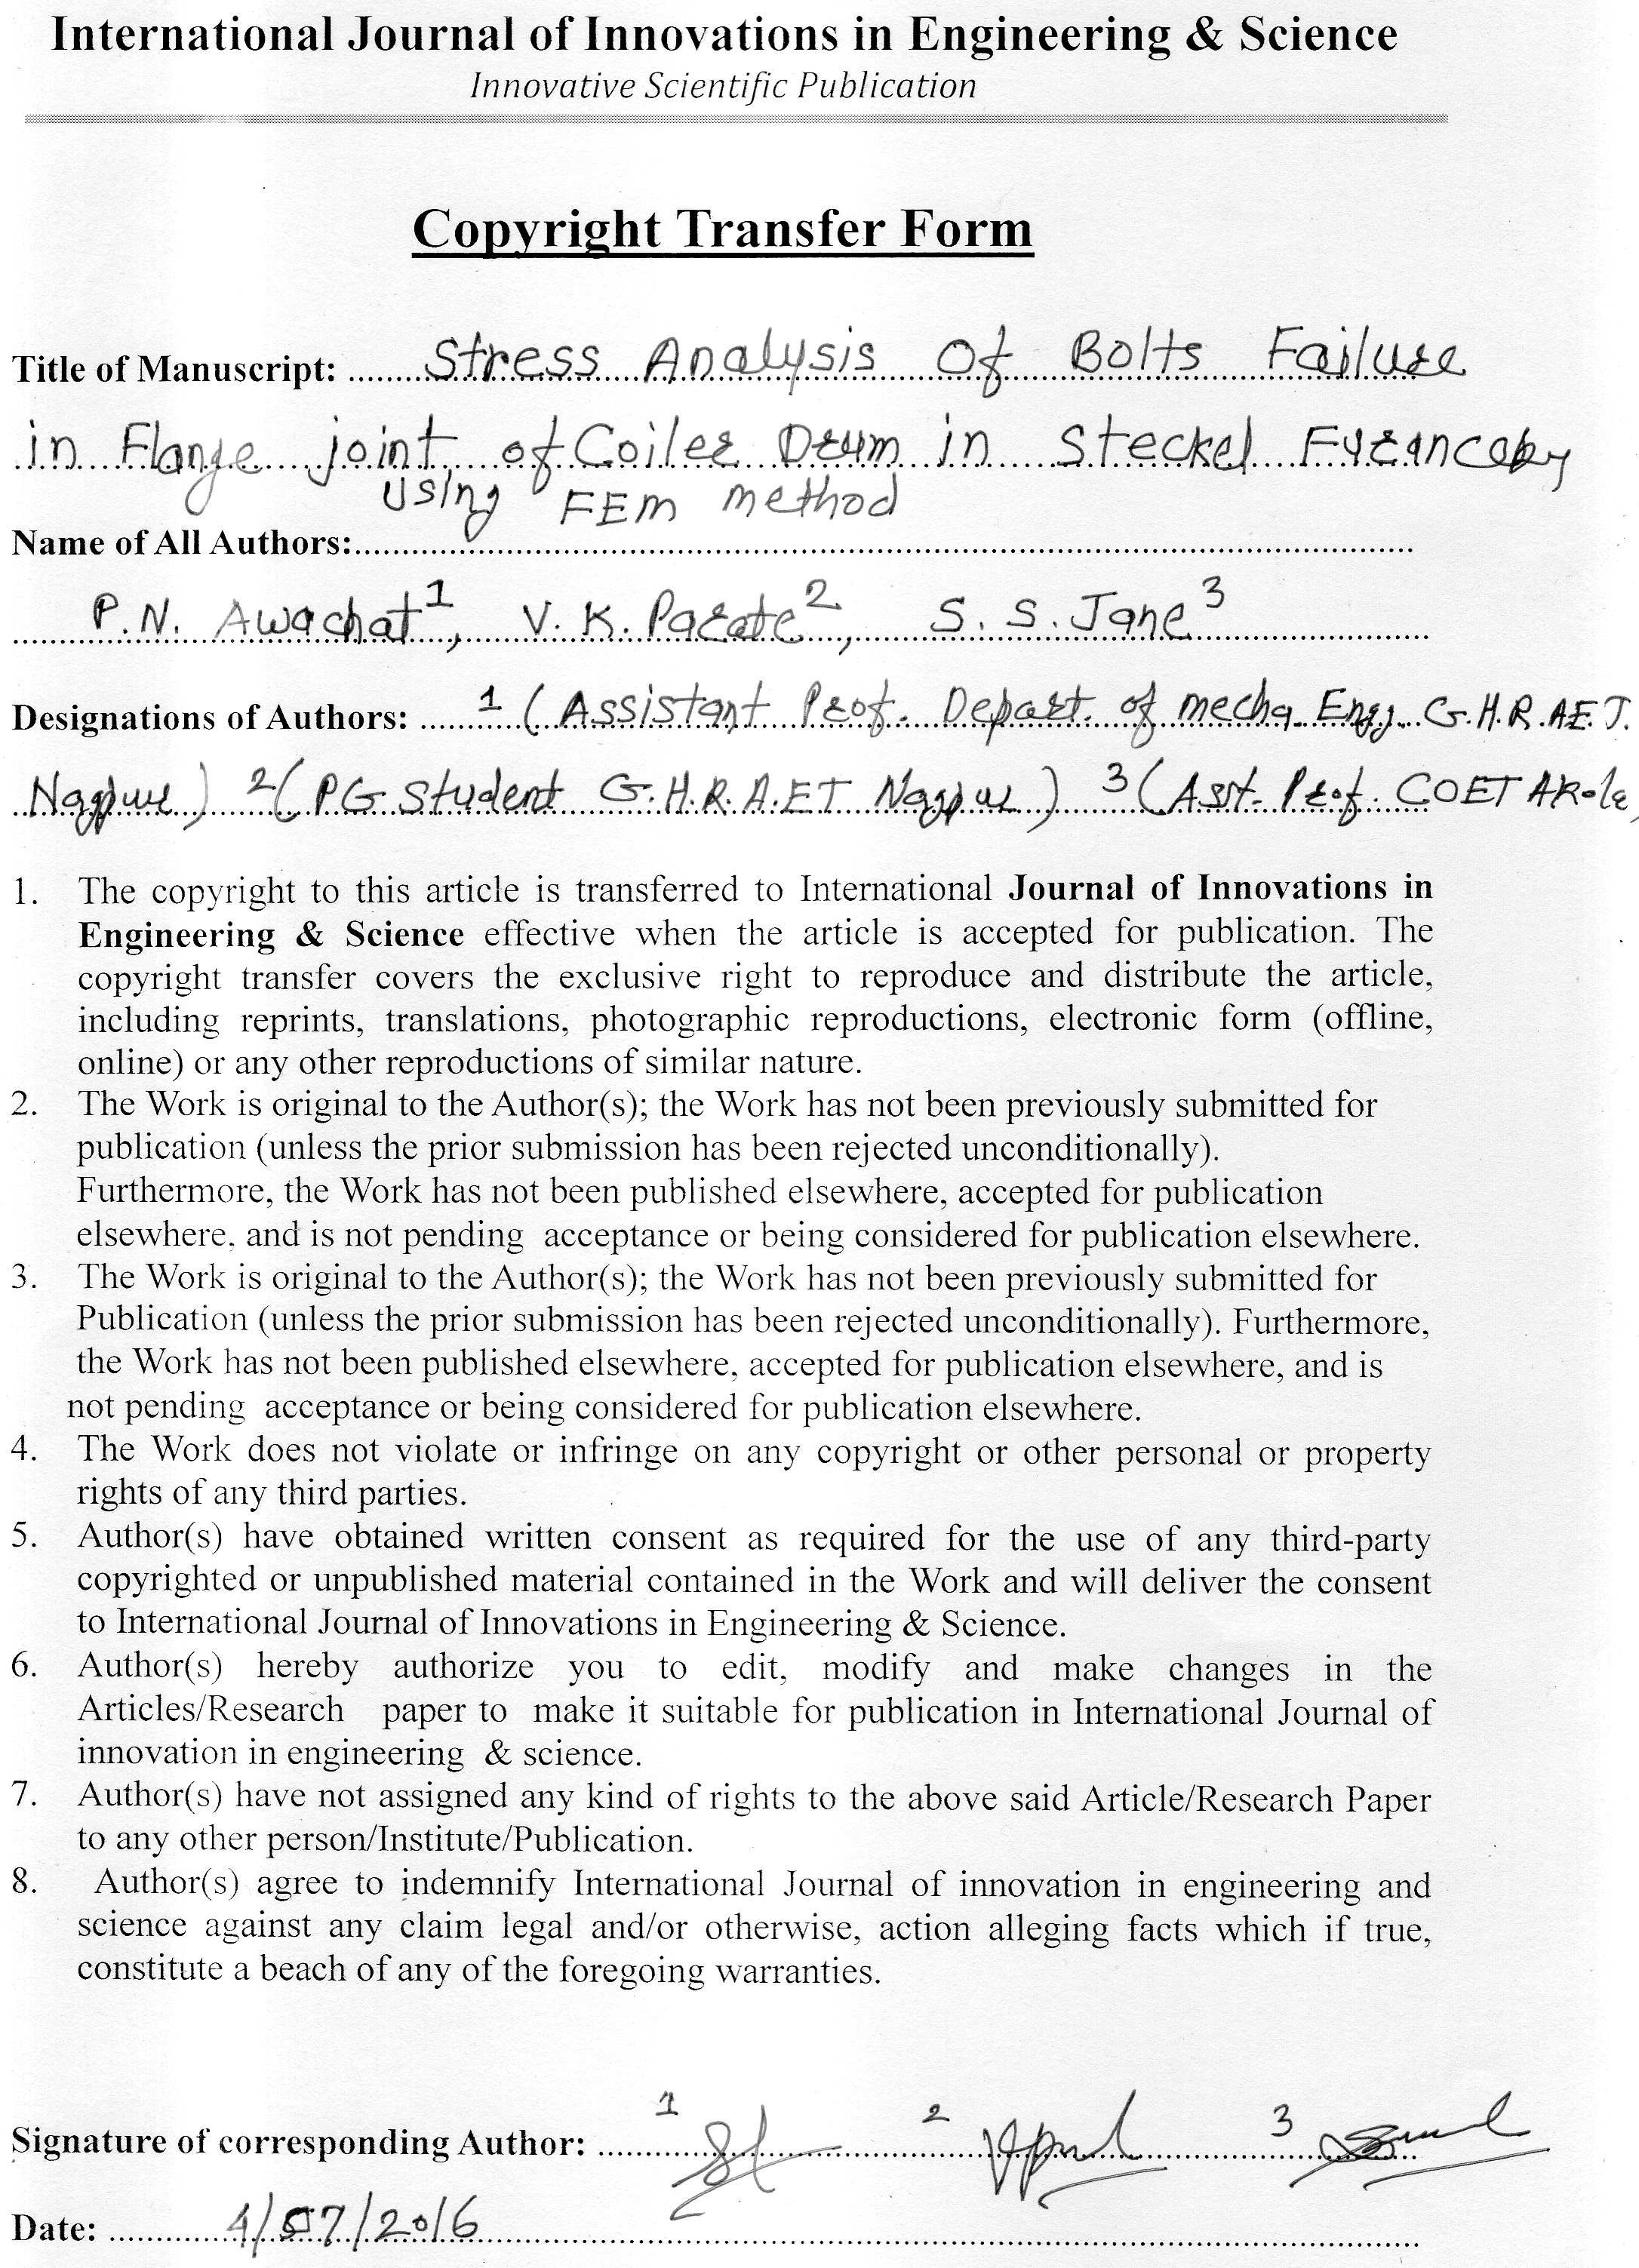 International Journal of Innovations in Engineering & Science
Innovative Scientific Publication
Copyright Transfer Form
Title of Manuscript: Stress Analysis Of Bolts Failure
in Flange joint of Coiler Drum in Steckel by
using FEM method
Name of All Authors:
P.N. Awachat 1, V. K. Parate 2, S. S. Jane 3
Designations of Authors: 1 (Assistant Prof. Depart. of mecha. Engg. G.H.R.AE.T.
Nagpur) 2( PG Student G.H.R.A.ET Nagpur ) 3 (Asst. Prof. COET AKola
1. The copyright to this article is transferred to International Journal of Innovations in
Engineering & Science effective when the article is accepted for publication. The
copyright transfer covers the exclusive right to reproduce and distribute the article,
including reprints, translations, photographic reproductions, electronic form (offline,
online) or any other reproductions of similar nature.
2. The Work is original to the Author(s); the Work has not been previously submitted for
publication (unless the prior submission has been rejected unconditionally).
Furthermore, the Work has not been published elsewhere, accepted for publication
elsewhere, and is not pending acceptance or being considered for publication elsewhere.
3. The Work is original to the Author(s); the Work has not been previously submitted for
Publication (unless the prior submission has been rejected unconditionally). Furthermore,
the Work has not been published elsewhere, accepted for publication elsewhere, and is
not pending acceptance or being considered for publication elsewhere.
4. The Work does not violate or infringe on any copyright or other personal or property
rights of any third parties.
5. Author(s) have obtained written consent as required for the use of any third-party
copyrighted or unpublished material contained in the Work and will deliver the consent
to International Journal of Innovations in Engineering & Science.
6. Author(s) hereby authorize you to edit, modify and make changes in the
Articles/Research paper to make it suitable for publication in International Journal of
innovation in engineering & science.
7. Author(s) have not assigned any kind of rights to the above said Article/Research Paper
to any other person/Institute/Publication.
8. Author(s) agree to indemnify International Journal of innovation in engineering and
science against any claim legal and/or otherwise, action alleging facts which if true,
constitute a beach of any of the foregoing warranties.
Signature of corresponding Author: 1 2 3
Date: 4/07/2016